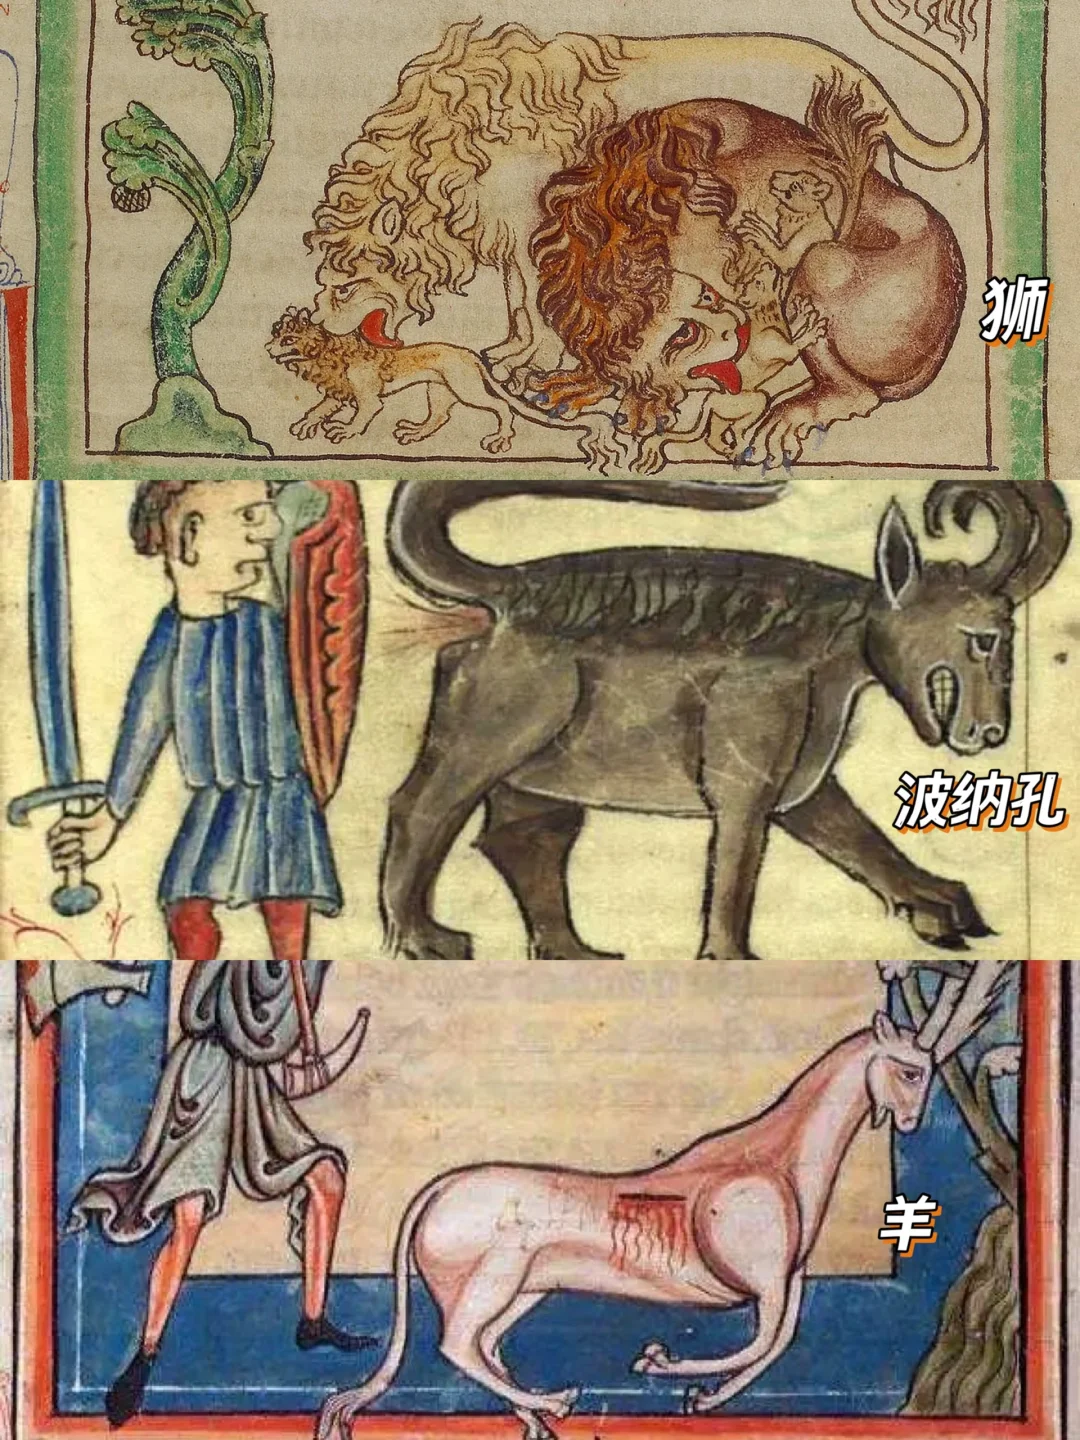 狮
波纳孔
羊